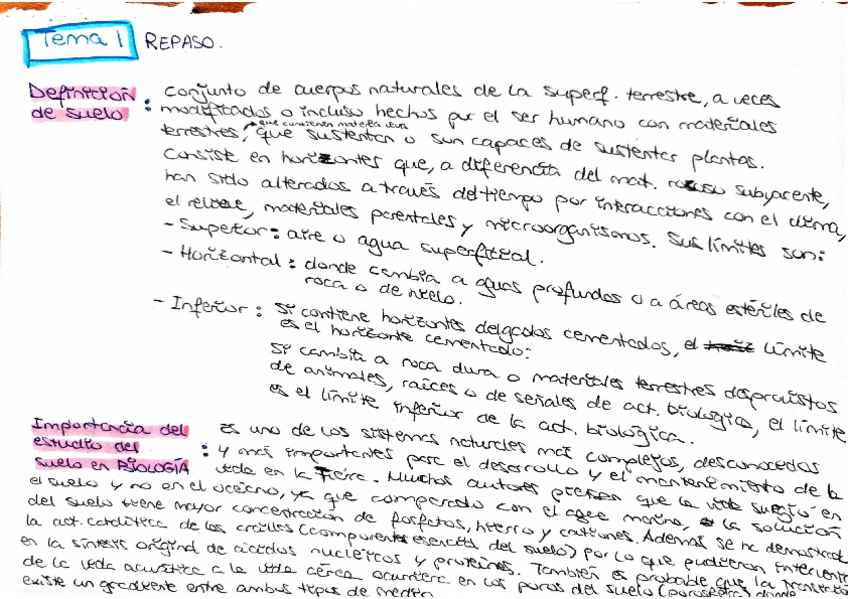 Tema 1 REPASO.
Definición de suelo : conjunto de cuerpos naturales de la superf. terrestre, a veces
modificados o incluso hechos por el ser humano con materiales
que contienen materia viva
terrestres, que sustentan o son capaces de sustentar plantas.
Consiste en horizontes que, a diferencia del mat. rocoso subyacente,
han sido alterados a través del tiempo por interacciones con el clima,
el relieve, materiales parentales y microorganismos. Sus límites son:
- Superior: aire o agua superficial.
- Horizontal: donde cambia a aguas profundas o a áreas estériles de
roca o de hielo.
- Inferior: Si contiene horizontes delgados cementados, el límite
es el horizonte cementado:
Si cambia a roca dura o materiales terrestres desprovistos
de animales, raíces o de señales de act. biológica, el límite
es el límite inferior de la act. biológica.
Importancia del estudio del suelo en BIOLOGÍA : es uno de los sistemas naturales más complejos, desconocidos
y más importantes para el desarrollo y el mantenimiento de la
vida en la Tierra. Muchos autores piensan que la vida surgió en
el suelo y no en el océano, ya que comparado con el agua marina, la solución
del suelo tiene mayor concentración de fosfatos, hierro y cationes. Además se ha demostrado
la act. catalítica de las arcillas (componente esencial del suelo) por lo que pudieron intervenir
en la síntesis original de ácidos nucleicos y proteínas. También es probable que la transición
de la vida acuática a la vida aérea ocurriera en los poros del suelo (porosfera) donde
existe un gradiente entre ambos tipos de medio